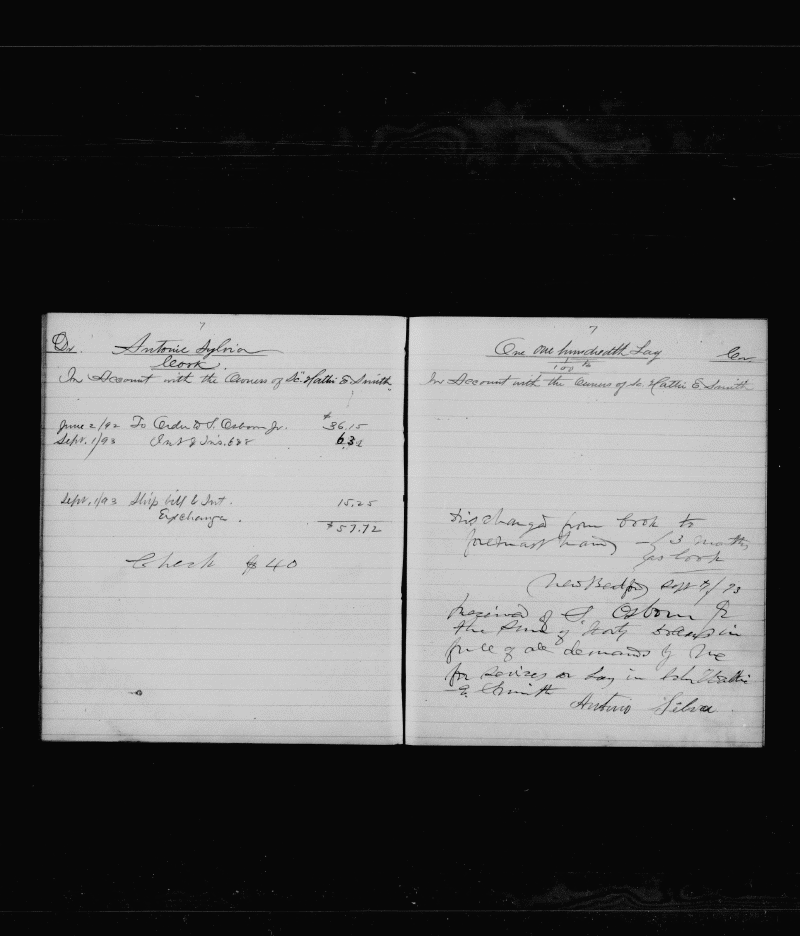 7
Dr Antonie Sylvia
Cook.
In Account with the Owners of Sc. Hattie E. Smith
June 2/92 To Order to S. Osborn Jr. $36.15
Sept. 1/93 Int & Ins. 6.32
Sept. 1/93 Ship bill & Int. 15.25
Exchange. $57.72
Check $40
7
One one hundredth Lay Cr
1/100 th
In Account with the Owners of Sc Hattie E. Smith
Dischanged from Cook to
foremast hand 3 months
as Cook
New Bedford Sept 7/93
Received of S. Osborn Jr
the sum of forty dollars in
full of all demands by me
for services or Lay in Schr Hattie
E. Smith
Antino Silva